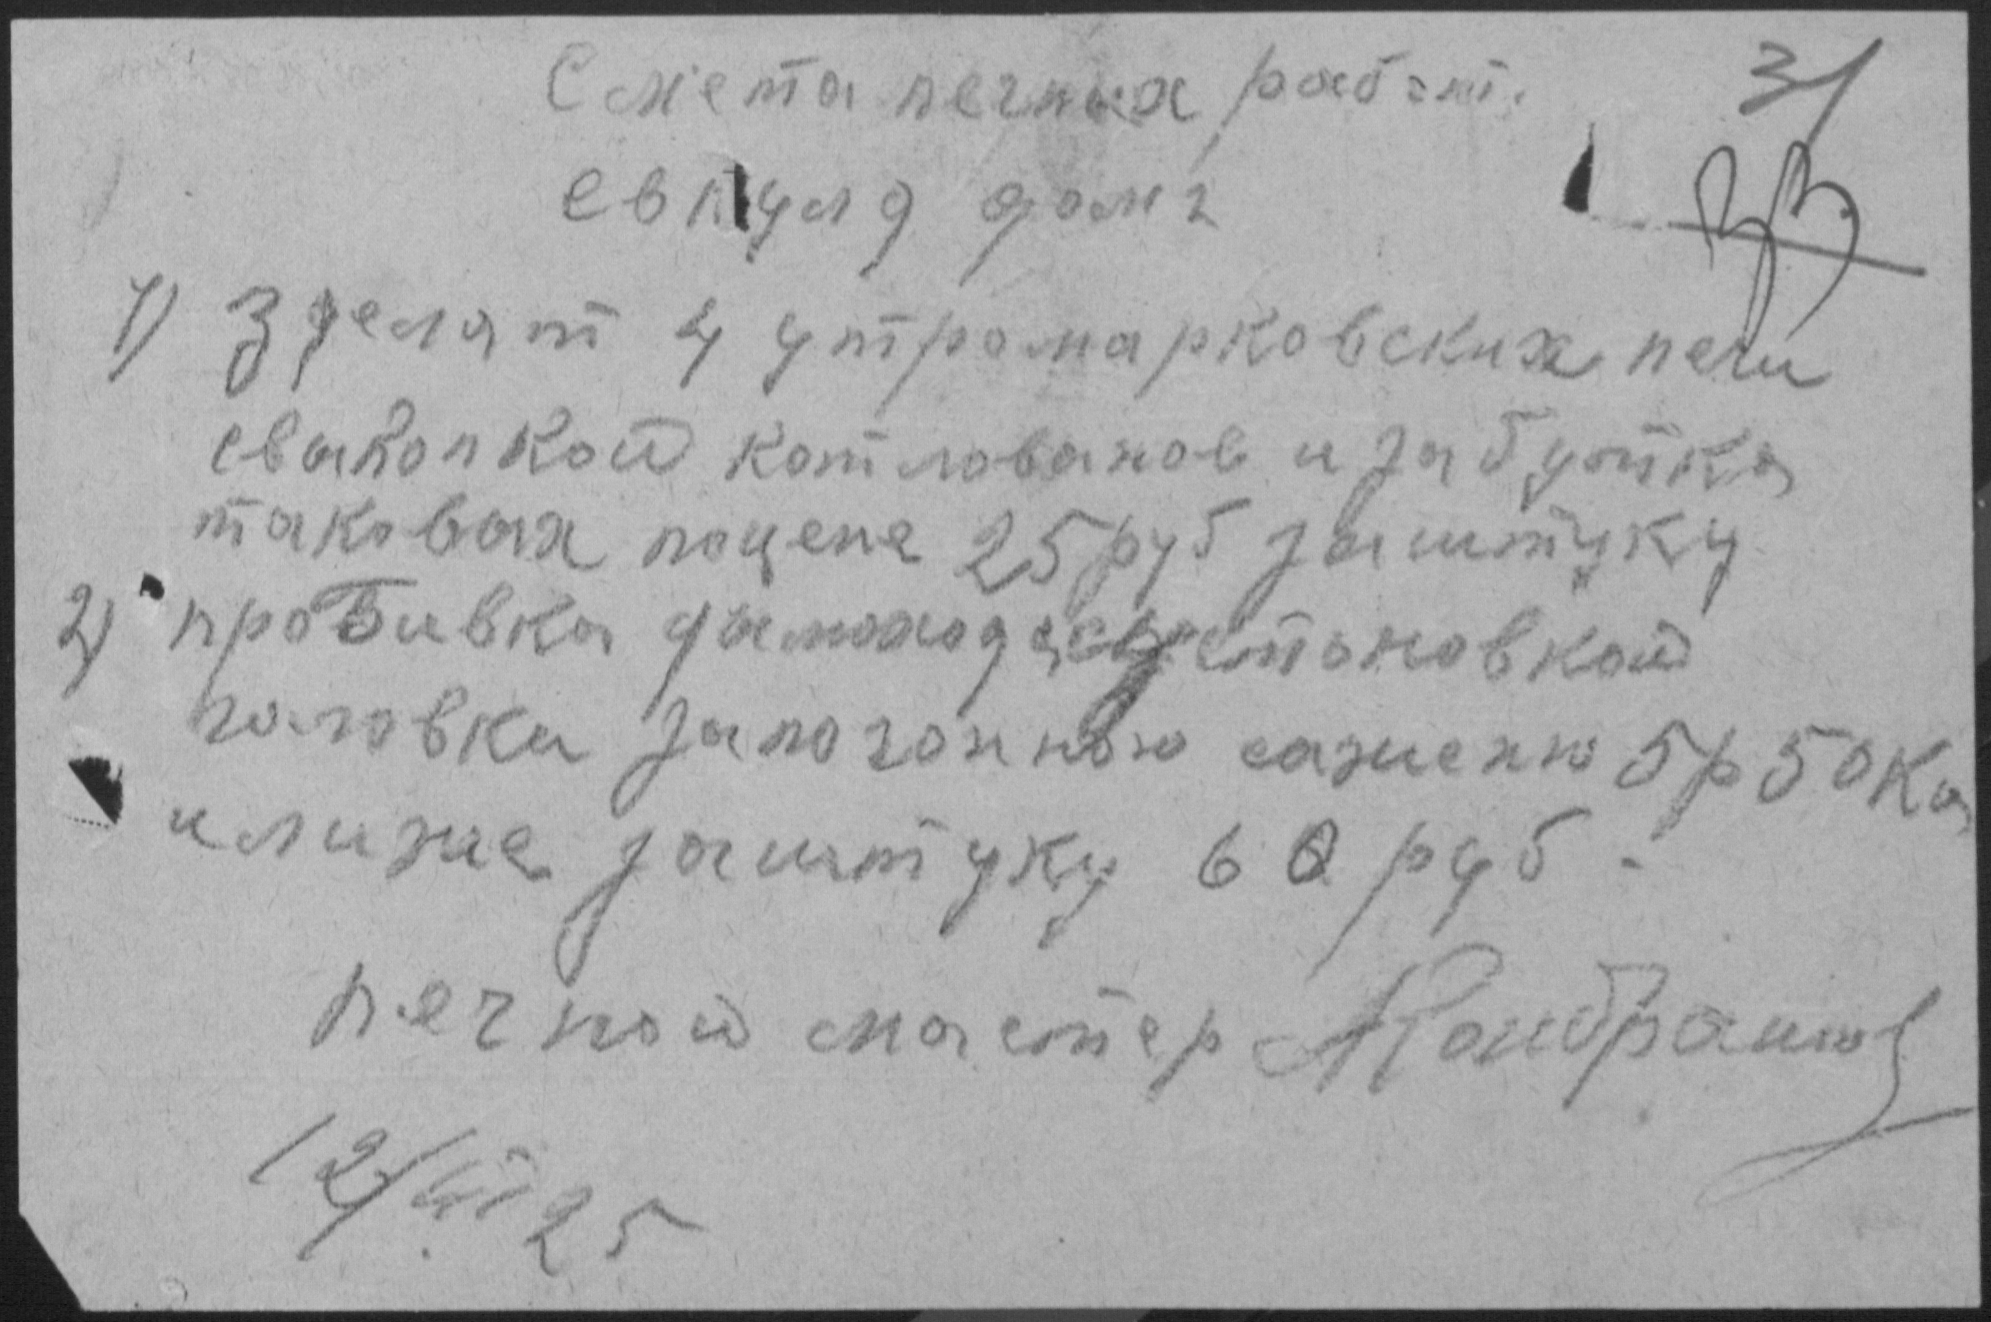 Смета печных работ. 31
33
в кулд доме
1) Зделат 4 утромарковских печи
свыкопкой котлованов и забутка
таковых поцене 25 руб заштуку
2) пробивка дымохода сустановкой
головки запогонною сажению 5р 50 Ко
илиже заштуку 60 руб.
печной мастер
12/III 25